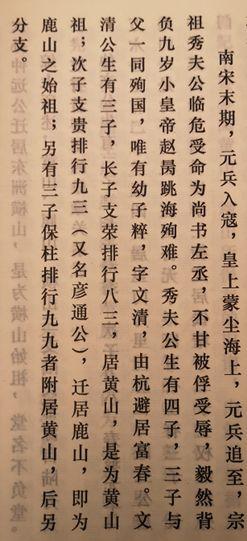 南宋末期，元兵入寇，皇上蒙尘海上，元兵追至，宗
祖秀夫公临危受命为尚书左丞，不甘被俘受辱，毅然背
负九岁小皇帝赵昺跳海殉难。秀夫公生有四子，三子与
父一同殉国，唯有幼子粹，字文清，由杭避居富春。文
清公生有三子，长子支荣排行八三，居黄山，是为黄山
祖；次子支贵排行九三（又名彦通公），迁居鹿山，即为
鹿山之始祖；另有三子保柱排行九九者附居黄山，后另
分支。